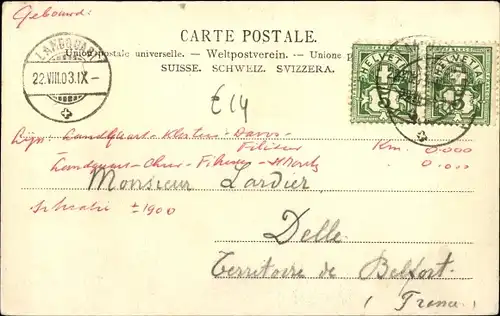 Gebouwd:
CARTE POSTALE.
Union postale universelle. — Weltpostverein. — Unione p
SUISSE. SCHWEIZ. SVIZZERA.
LANDQUART
22.VIII.03.IX-
HELVETIA HELVETIA
5 5
E14
Landquart - Klosters - Davos -
Filisur Km. 0.000
Landquart - Chur - Filisur - St Moritz 0.000
Monsieur Lardier
± 1900
Delle
Territoire de Belfort.
(France